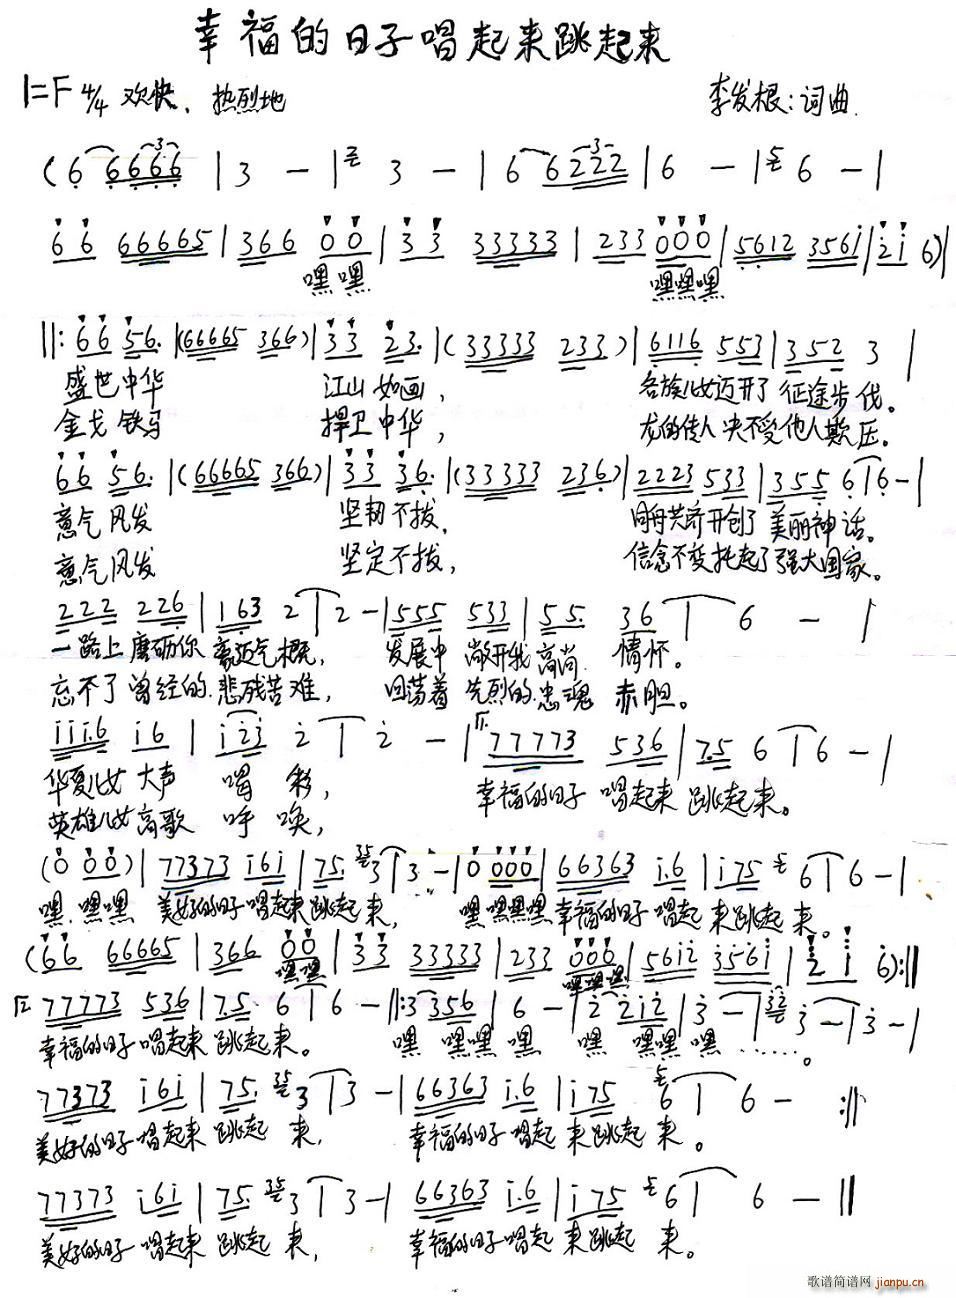 幸福的日子唱起来跳起来
1=F 4/4 欢快、热烈地 李发根:词曲
(6 6666 | 3 - | 3 - | 6 6222 | 6 - | 6 - |
66 66665 | 366 00 | 33 33333 | 233 000 | 5612 3561 | 21 6)|
嘿嘿 嘿嘿嘿
||: 66 56. | (66665 366) | 33 23. | (33333 233) | 6116 553 | 352 3 |
盛世中华 江山如画, 各族儿女迈开了征途步伐。
金戈铁马 捍卫中华, 龙的传人决不受他人欺压。
66 56. | (66665 366) | 33 36. | (33333 236) | 2223 533 | 355 6 | 6 - |
意气风发 坚韧不拔, 同舟共济开创了美丽神话。
意气风发 坚定不拔, 信念不变托起了强大国家。
222 226 | 163 2 | 2 - | 555 533 | 55. 36 | 6 - |
一路上磨砺你豪迈气概, 发展中敞开我高尚情怀。
忘不了曾经的悲残苦难, 回荡着先烈的忠魂赤胆。
111.6 16 | 123 2 | 2 - | 77773 536 | 7.5 6 | 6 - |
华夏儿女大声喝彩, 幸福的日子唱起来跳起来。
英雄儿女高歌呼唤,
(0 00) | 77373 161 | 75. 35 3 | 3 - | 0 000 | 66363 1.6 | 175 6 | 6 - |
嘿.嘿嘿 美好的日子唱起来跳起来, 嘿嘿嘿嘿幸福的日子唱起来跳起来。
(66 66665 | 366 00 | 33 33333 | 233 000 | 5612 3561 | 21 6):||
嘿嘿 嘿嘿嘿
77773 536 | 75. 6 | 6 - ||: 3 356 | 6 - | 2 212 | 3 - | 32 3 - | 3 - |
幸福的日子唱起来跳起来。 嘿 嘿嘿嘿 嘿 嘿嘿嘿……。
77373 161 | 75. 35 3 | 3 - | 66363 1.6 | 175 6 | 6 - :||
美好的日子唱起来跳起来, 幸福的日子唱起来跳起来。
77373 161 | 75. 35 3 | 3 - | 66363 1.6 | 175 6 | 6 - ||
美好的日子唱起来跳起来, 幸福的日子唱起来跳起来。
歌谱简谱网 jianpu.cn